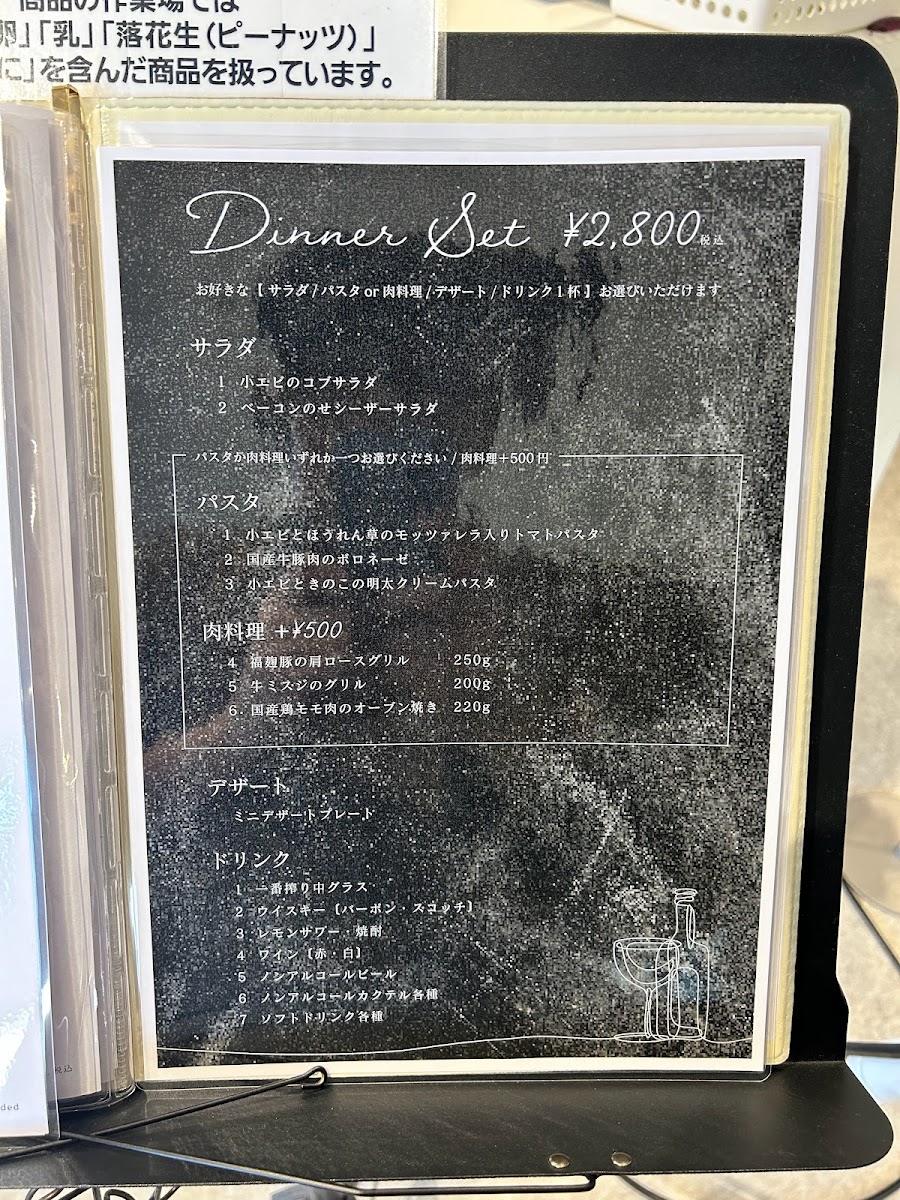 商品の作業場では
卵」「乳」「落花生（ピーナッツ）」
に」を含んだ商品を扱っています。
Dinner Set ¥2,800 税込
お好きな【 サラダ / パスタ or 肉料理 / デザート / ドリンク1杯 】お選びいただけます
サラダ
1 小エビのコブサラダ
2 ベーコンのせシーザーサラダ
パスタか肉料理いずれか一つお選びください / 肉料理+500円
パスタ
1 小エビとほうれん草のモッツァレラ入りトマトパスタ
2 国産牛豚肉のボロネーゼ
3 小エビときのこの明太クリームパスタ
肉料理 +¥500
4 福麹豚の肩ロースグリル 250g
5 牛ミスジのグリル 200g
6. 国産鶏モモ肉のオーブン焼き 220g
デザート
ミニデザートプレート
ドリンク
1 一番搾り中グラス
2 ウイスキー〔バーボン・スコッチ〕
3 レモンサワー・焼酎
4 ワイン〔赤・白〕
5 ノンアルコールビール
6 ノンアルコールカクテル各種
7 ソフトドリンク各種
税込
ded